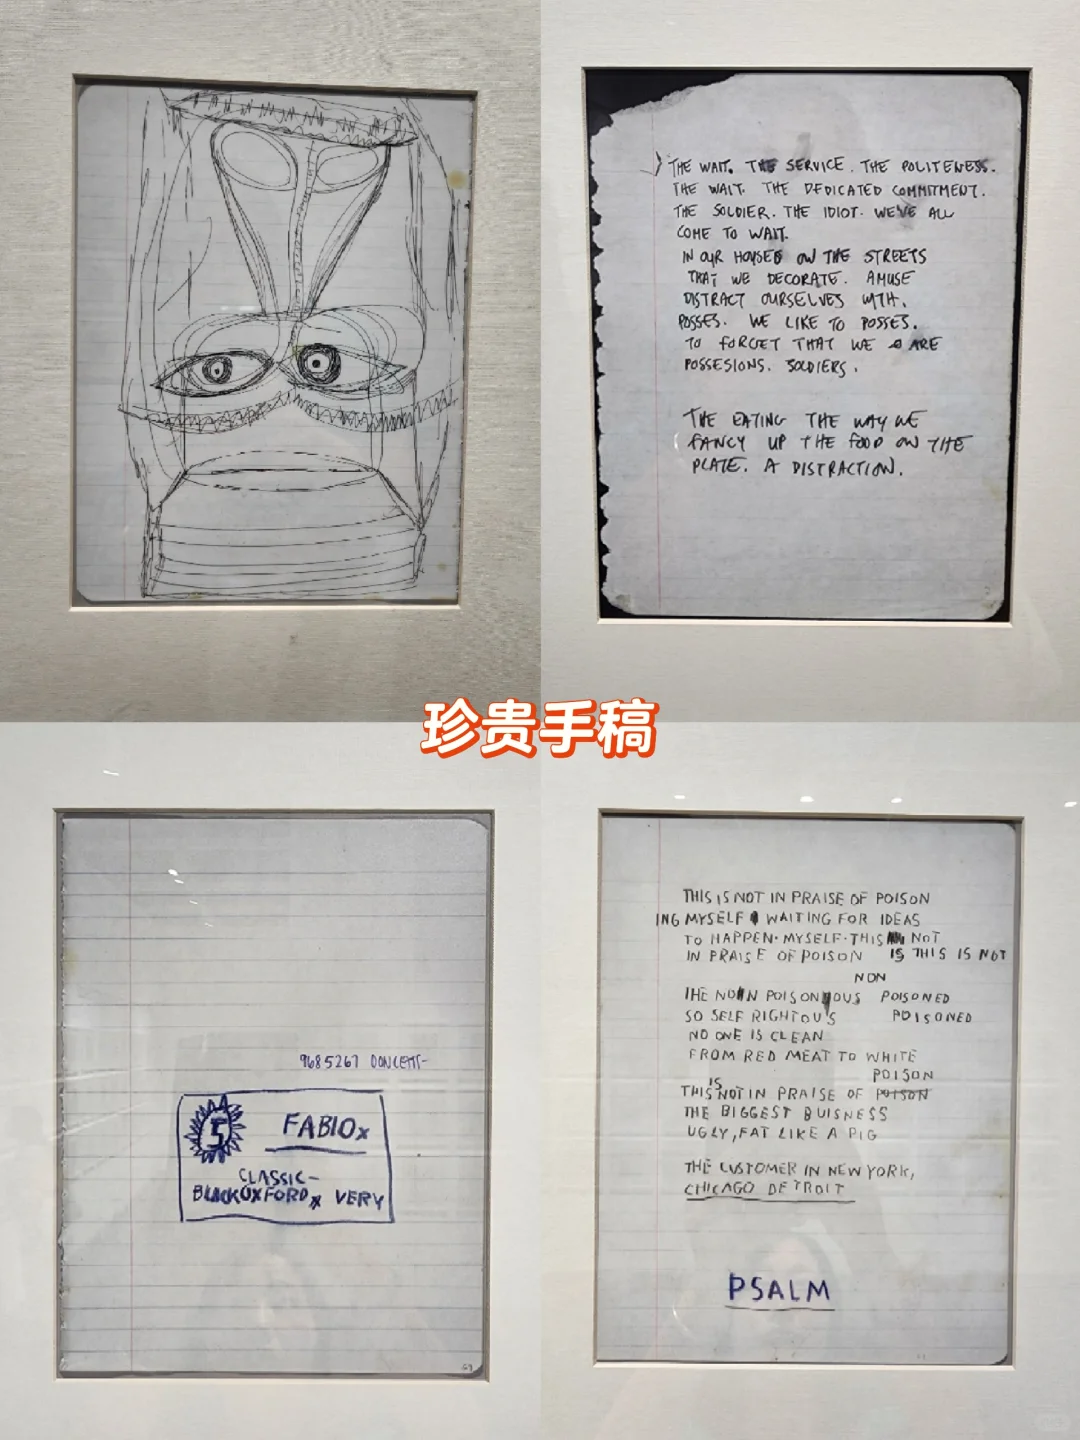 THE WAIT. THE SERVICE. THE POLITENESS.
THE WAIT. THE DEDICATED COMMITMENT.
THE SOLDIER. THE IDIOT. WE'VE ALL
COME TO WAIT.
IN OUR HOUSES ON THE STREETS
THAT WE DECORATE. AMUSE
DISTRACT OURSELVES WITH.
POSSES. WE LIKE TO POSSES.
TO FORGET THAT WE ARE
POSSESIONS. SOLDIERS.
THE EATING THE WAY WE
FANCY UP THE FOOD ON THE
PLATE. A DISTRACTION.
珍贵手稿
9685267
5 FABIO x
CLASSIC-
BLACK OXFORD x VERY
THIS IS NOT IN PRAISE OF POISON
ING MYSELF WAITING FOR IDEAS
TO HAPPEN·MYSELF·THIS NOT
IN PRAISE OF POISON IS THIS IS NOT
NON
THE NON POISONOUS POISONED
SO SELF RIGHTOUS POISONED
NO ONE IS CLEAN
FROM RED MEAT TO WHITE
POISON
THIS IS NOT IN PRAISE OF POISON
THE BIGGEST BUISNESS
UGLY, FAT LIKE A PIG
THE CUSTOMER IN NEW YORK,
CHICAGO DETROIT
PSALM